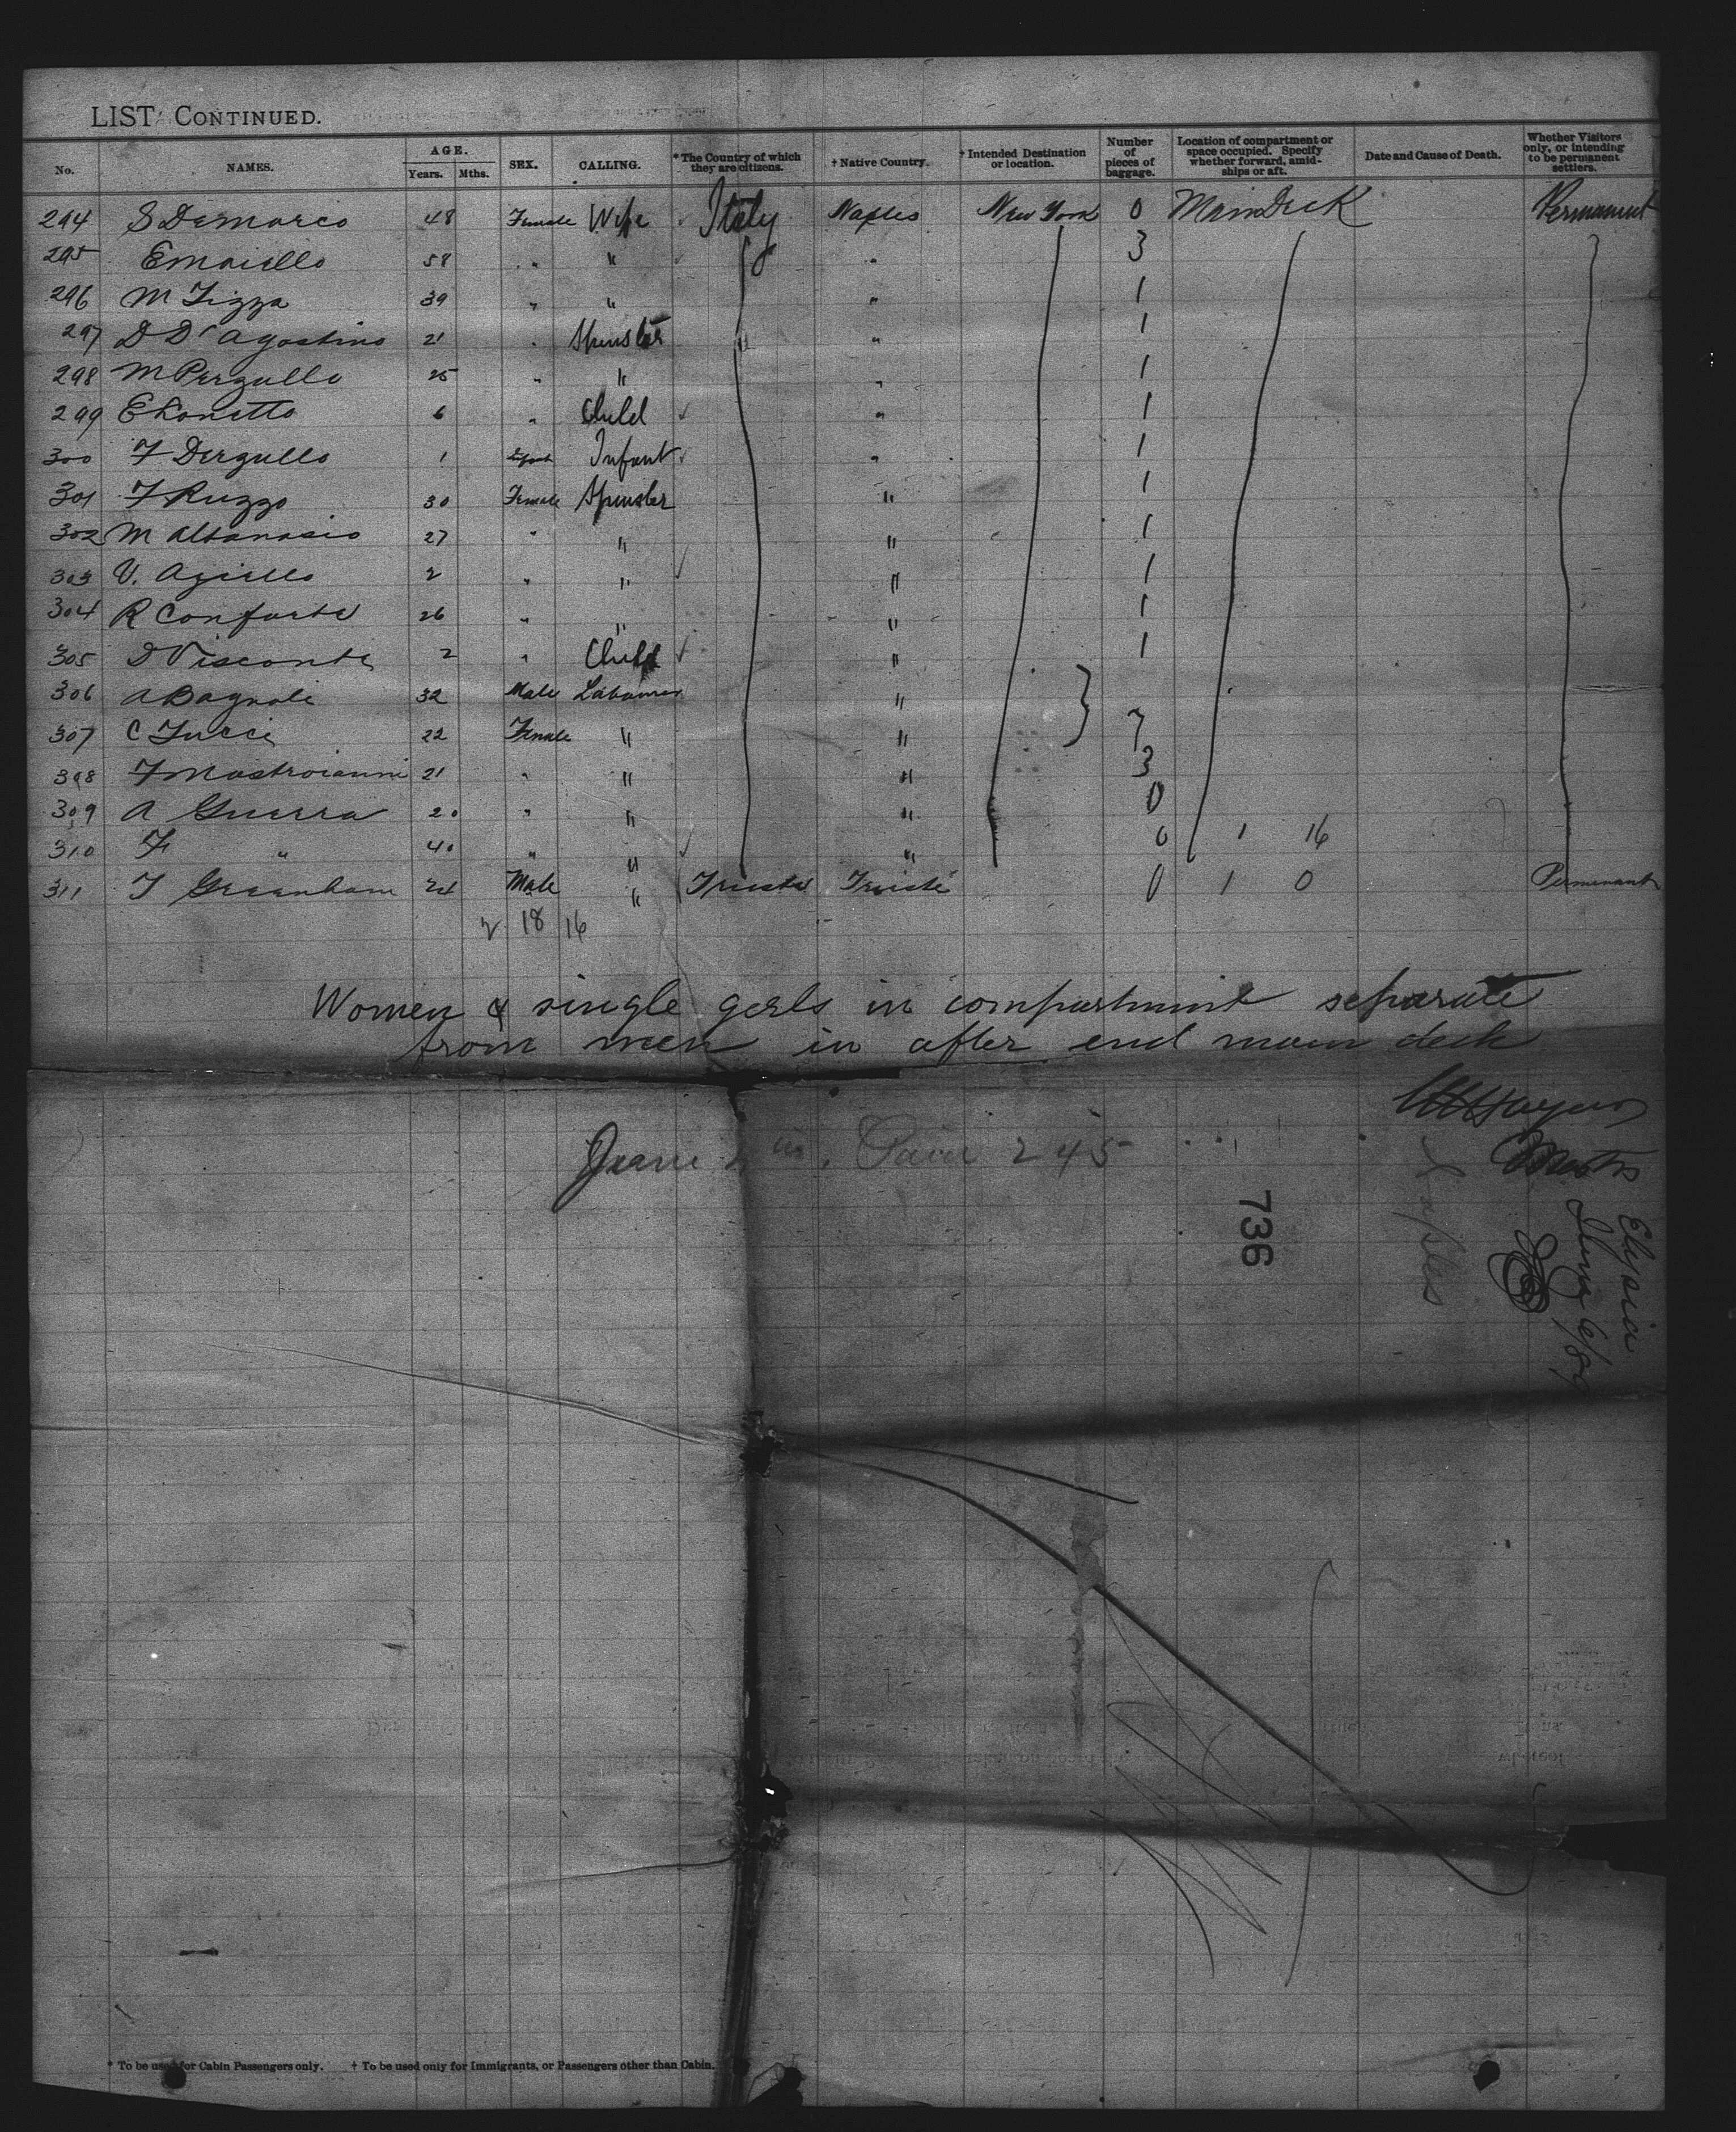 LIST CONTINUED.
No. NAMES. AGE. Years. Mths. SEX. CALLING. * The Country of which they are citizens. † Native Country. † Intended Destination or location. Number of pieces of baggage. Location of compartment or space occupied. Specify whether forward, amid-ships or aft. Date and Cause of Death. Whether Visitors only, or intending to be permanent settlers.
294 S Demarco 48 Female Wife Italy Naples New York 0 Main Deck Permanent
295 E Maiello 58 " " " 3
296 M Tizza 39 " " " 1
297 D D'Agostino 21 " Spinster " " 1
298 M Perzullo 25 " " " 1
299 E Lonetto 6 " Child " 1
300 F Derzullo 1 Infant " 1
301 F Ruzzo 30 Female Spinster " 1
302 M Altanasio 27 " " " 1
303 V. Aziello 2 " " " 1
304 R Conforte 26 " " " 1
305 D Visconte 2 " Child " 1
306 A Bagnole 32 Male Labourer "
307 C Tucci 22 Female " " 7
308 F Mastroianni 21 " " " 3
309 A Guerra 20 " " " 0
310 F " 40 " " " 0 1 16
311 T Greenham 24 Male " Trieste Trieste 0 1 0 Permanent
2 18 16
Women & single gerls in compartment separate
from men in after end main deck
245
736
Naples
Elysia
June 6/89
* To be used for Cabin Passengers only. † To be used only for Immigrants, or Passengers other than Cabin.